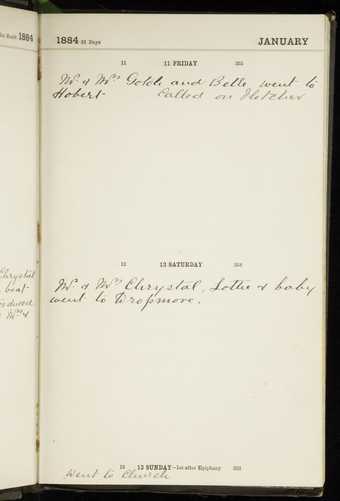 1884
1884 31 Days JANUARY
11 11 FRIDAY 355
Mr. & Mrs. Golch and Belle went to
Hobert Called on Fletcher
12 12 SATURDAY 354
Mr. & Mrs. Chrystal, Lottie & baby
went to Dropmore.
13 13 SUNDAY—1st after Epiphany 353
Went to Church
Chrystal
boat
Mrs &